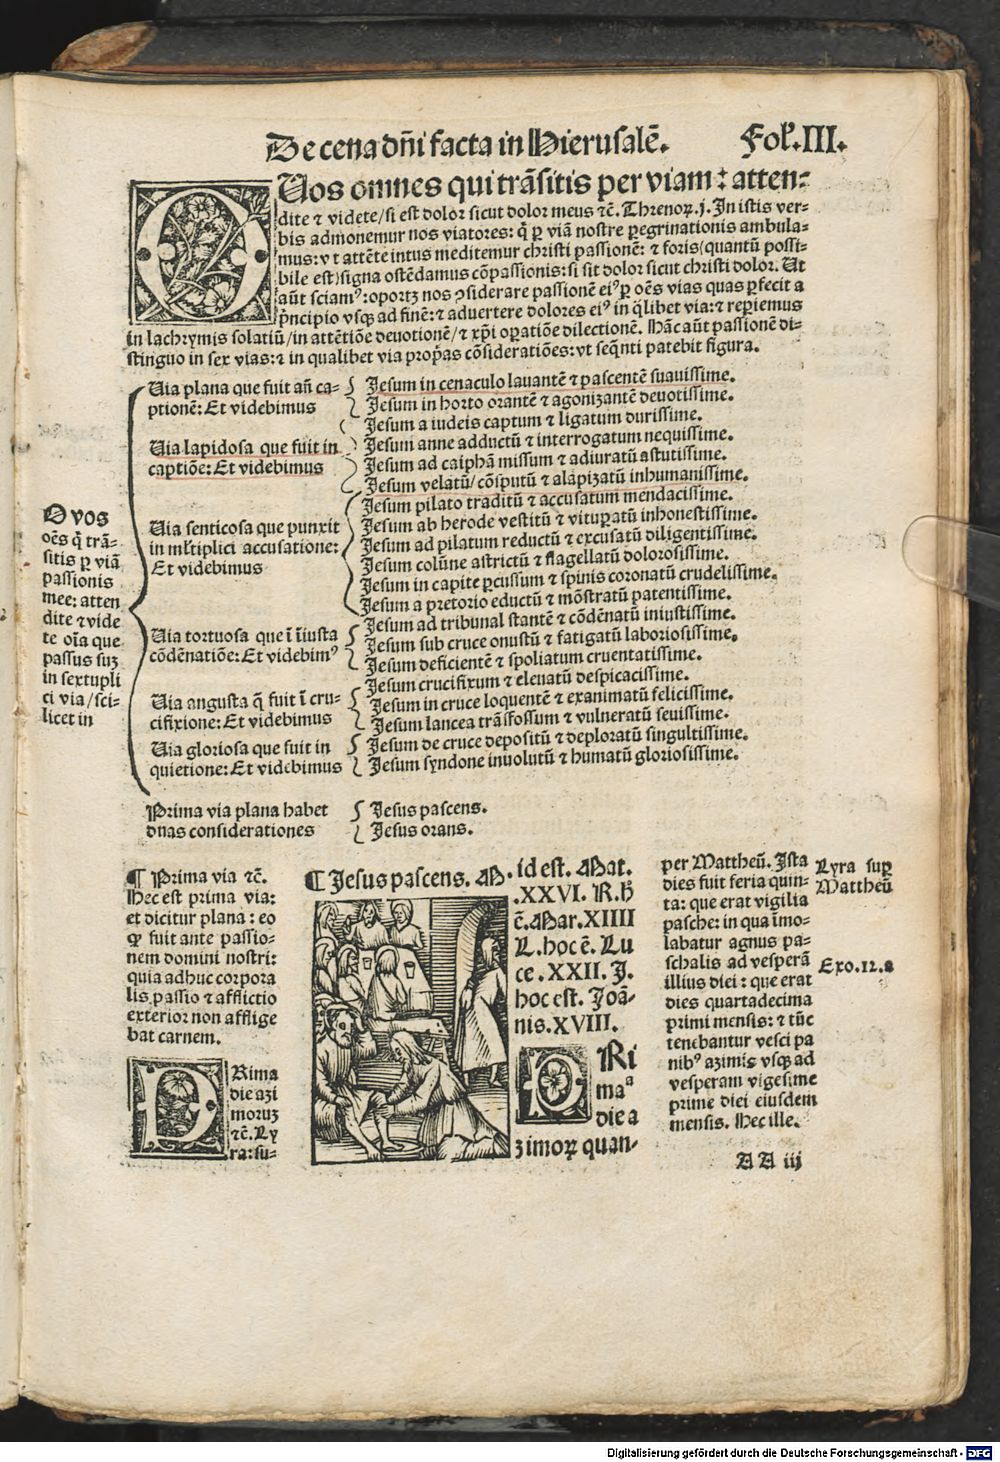 De cena dñi facta in Hierusalē. Fol'. III.
O Uos omnes qui trāsitis per viam: atten-
dite ⁊ videte/si est dolor sicut dolor meus ⁊c̄. Threnoꝝ.j. In istis ver-
bis admonemur nos viatores: q̇ ꝑ viā nostre ꝑegrinationis ambula-
mus: vt attēte intus meditemur christi passionē: ⁊ foris/quantū possi-
bile est/signa ostēdamus cōpassionis: si sit dolor sicut christi dolor. Ut
aūt sciamꝰ: oportꝫ nos ꝯsiderare passionē eiꝰ ꝑ oēs vias quas ꝑfecit a
pͥncipio vsqꝫ ad finē: ⁊ aduertere dolores eiꝰ in qͣlibet via: ⁊ reꝑiemus
in lachrymis solatiū/in attētiōe deuotionē/⁊ xp̄i oꝑatiōe dilectionē. Hāc aūt passionē di-
stinguo in sex vias: ⁊ in qualibet via propͥas cōsideratiōes: vt seqͣnti patebit figura.
O vos
oēs q̇ trā-
sitis ꝑ viā
passionis
mee: atten
dite ⁊ vide
te oīa que
passus suꝫ
in sextupli
ci via/sci-
licet in
Uia plana que fuit añ ca-
ptionē: Et videbimus
Jesum in cenaculo lauantē ⁊ pascentē suauissime.
Jesum in horto orantē ⁊ agonizantē deuotissime.
Uia lapidosa que fuit in
captiōe: Et videbimus
Jesum a iudeis captum ⁊ ligatum durissime.
Jesum anne adductū ⁊ interrogatum nequissime.
Jesum ad caiphā missum ⁊ adiuratū astutissime.
Jesum velatū/cōsputū ⁊ alapizatū inhumanissime.
Uia senticosa que punxit
in mltiplici accusatione:
Et videbimus
Jesum pilato traditū ⁊ accusatum mendacissime.
Jesum ab herode vestitū ⁊ vituꝑatū inhonestissime.
Jesum ad pilatum reductū ⁊ excusatū diligentissime.
Jesum colūne astrictū ⁊ flagellatū dolorosissime.
Jesum in capite ꝑcussum ⁊ spinis coronatū crudelissime.
Jesum a pretorio eductū ⁊ mōstratū patentissime.
Uia tortuosa que ī īiusta
cōdēnatiōe: Et videbimꝰ
Jesum ad tribunal stantē ⁊ cōdēnatū iniustissime.
Jesum sub cruce onustū ⁊ fatigatū laboriosissime.
Jesum deficientē ⁊ spoliatum cruentatissime.
Uia angusta q̄ fuit ī cru-
cifixione: Et videbimus
Jesum crucifixum ⁊ eleuatū despicacissime.
Jesum in cruce loquentē ⁊ exanimatū felicissime.
Jesum lancea trāsfossum ⁊ vulneratū seuissime.
Uia gloriosa que fuit in
quietione: Et videbimus
Jesum de cruce depositū ⁊ deploratū singultissime.
Jesum syndone inuolutū ⁊ humatū gloriosissime.
Prima via plana habet
duas considerationes
Jesus pascens.
Jesus orans.
¶ Prima via ⁊c̄.
Hec est prima via:
et dicitur plana: eo
ꝙ fuit ante passio-
nem domini nostri:
quia adhuc corpora
lis passio ⁊ afflictio
exterior non afflige
bat carnem.
PRima
die azi
moruꝫ
⁊c̄. Ly
ra: su-
¶ Jesus pascens. M. id est. Mat.
.XXVI. R. h̄
ē. Mar. XIIII
L. hoc ē. Lu
ce. XXII. J.
hoc est. Joā-
nis. XVIII.
PRi
maᵃ
die a
zimoꝝ quan-
per Mattheū. Ista
dies fuit feria quin-
ta: que erat vigilia
pasche: in qua īmo-
labatur agnus pa-
schalis ad vesperā
illius diei: que erat
dies quartadecima
primi mensis: ⁊ tūc
tenebantur vesci pa
nibꝰ azimis vsqꝫ ad
vesperam vigesime
prime diei eiusdem
mensis. Hec ille.
Lyra suꝑ
Mattheū
Exo.12.a
AA iij
Digitalisierung gefördert durch die Deutsche Forschungsgemeinschaft - DFG